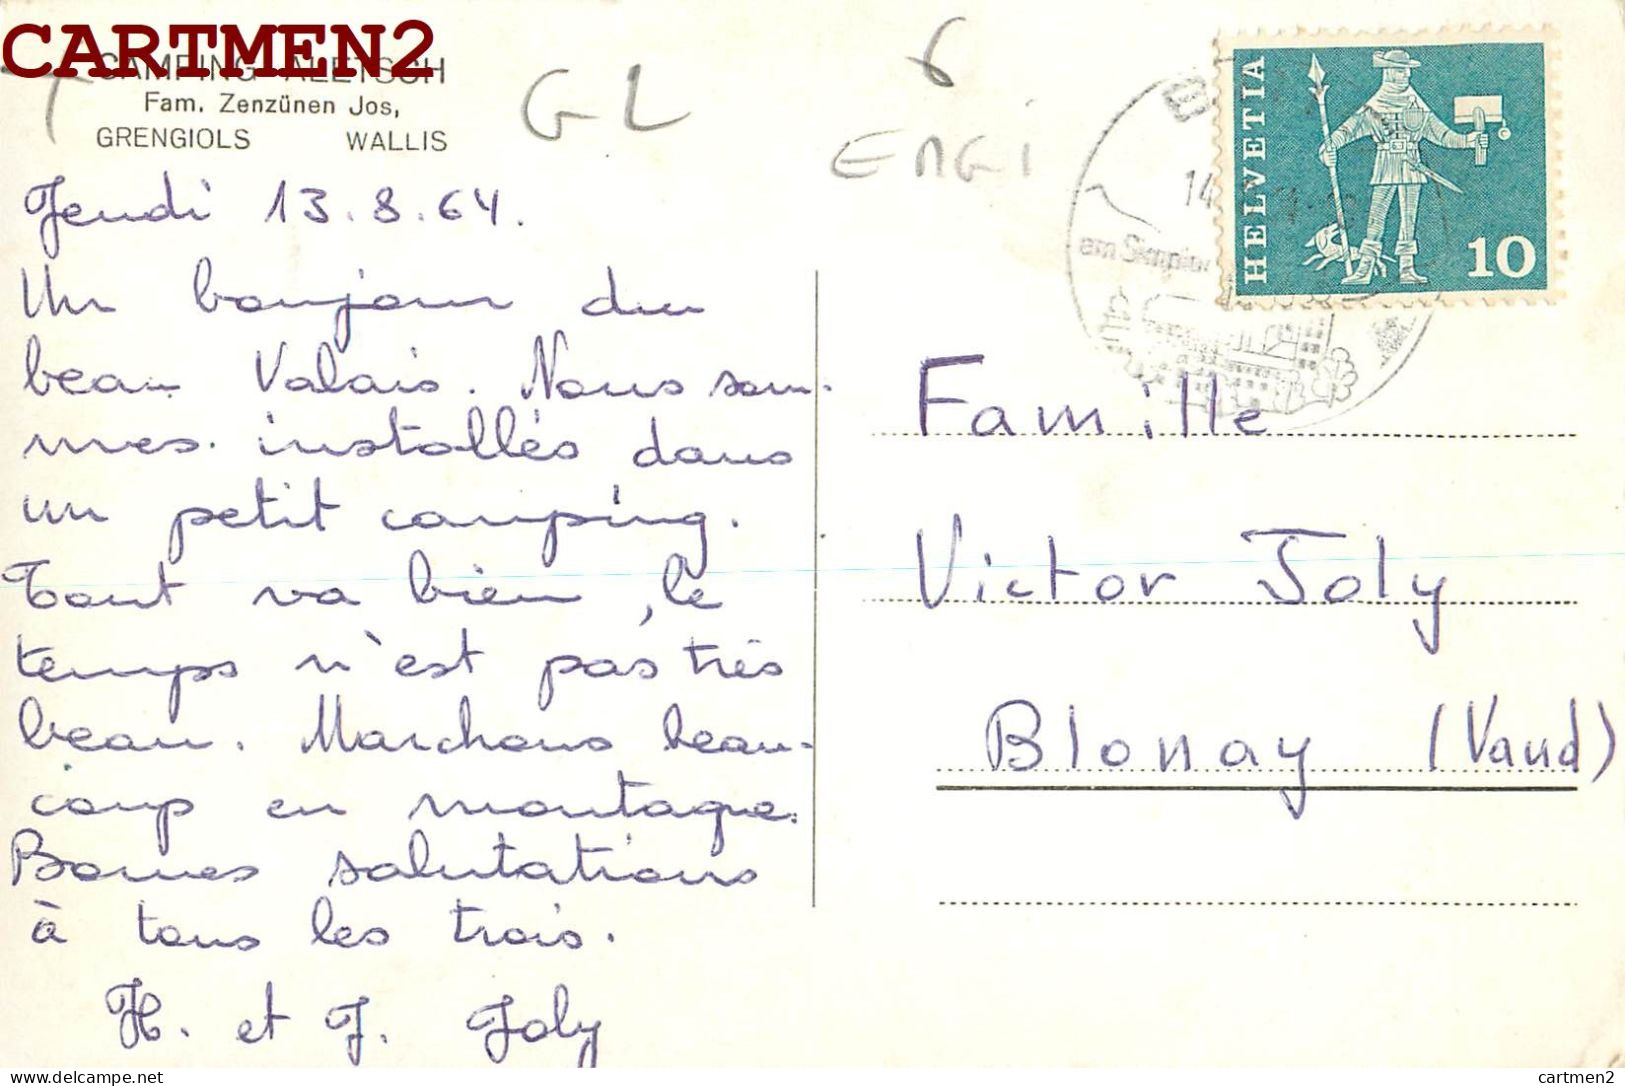 CARTMEN2
CAMPING ALETSCH
Fam. Zenzünen Jos,
GRENGIOLS WALLIS
GL
6
ENGI
Jeudi 13.8.64.
Un bonjour du
beau Valais. Nous som-
mes installés dans
un petit camping.
Tout va bien, le
temps n'est pas très
beau. Marchons beau-
coup en montagne.
Bonnes salutations
à tous les trois.
H. et J. Joly
HELVETIA
10
14
am Simplon
Famille
Victor Joly
Blonay (Vaud)
delcampe.net
cartmen2